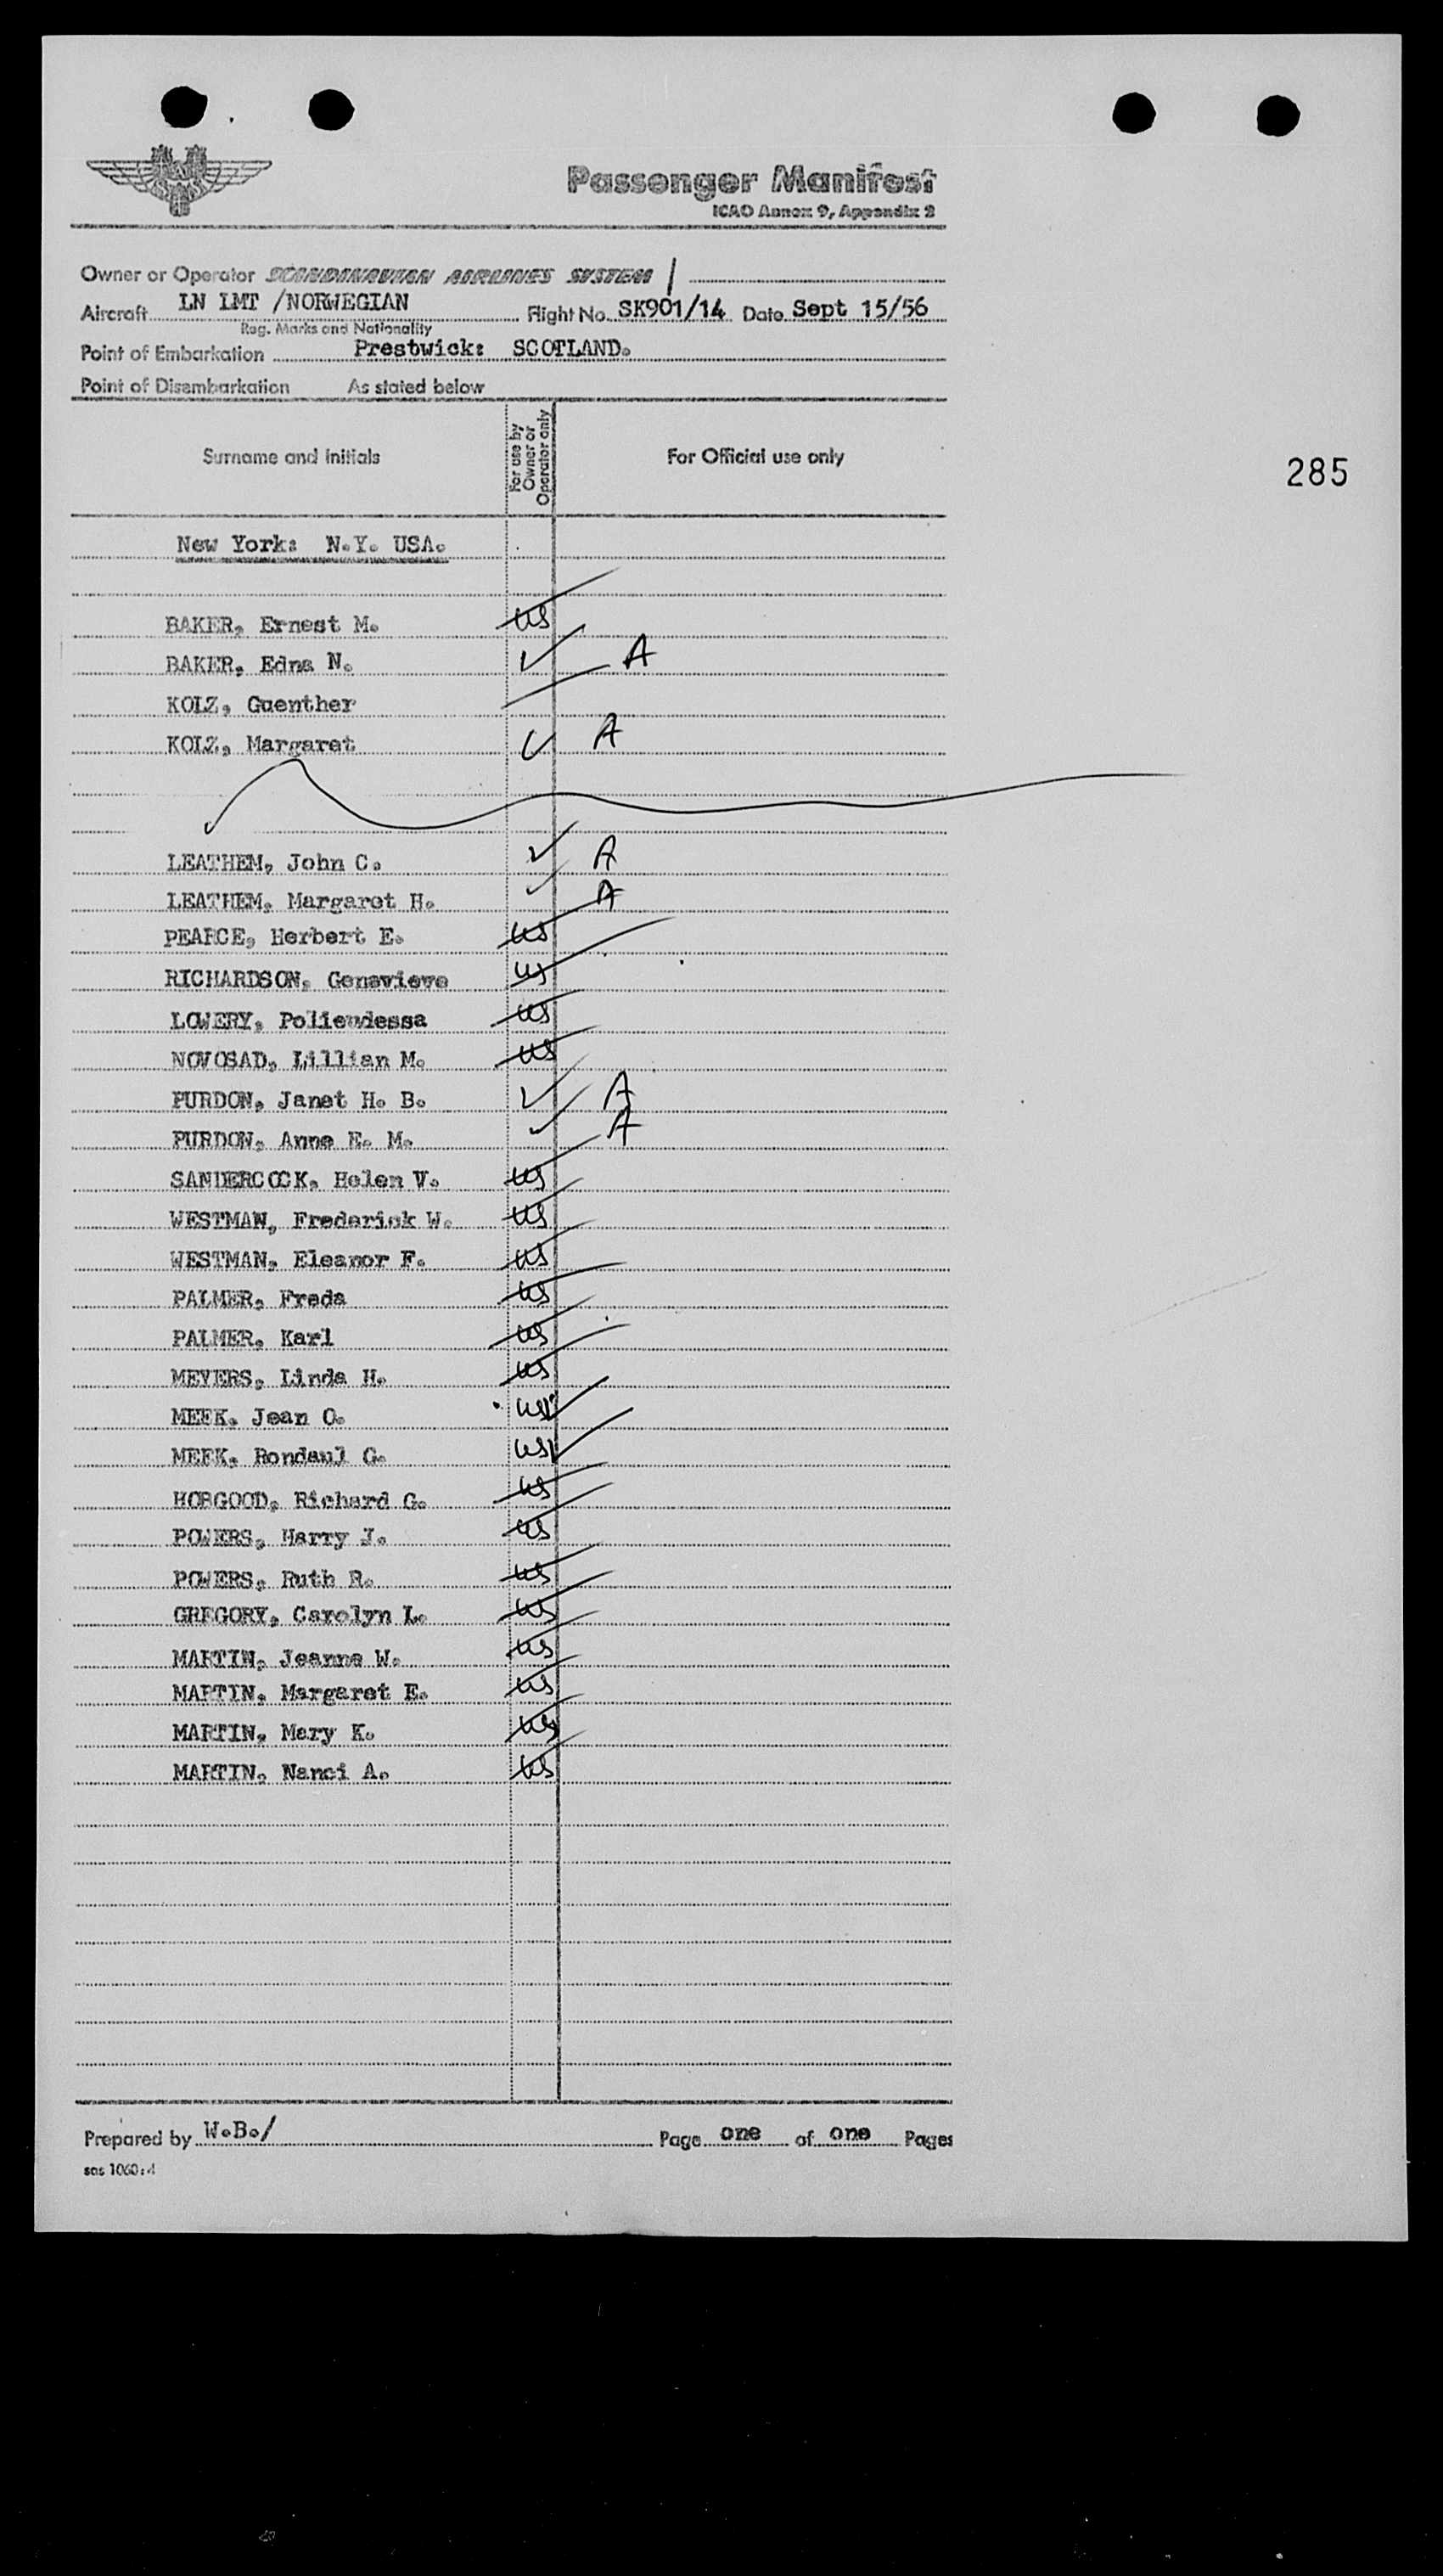 SAS
Passenger Manifest
ICAO Annex 9, Appendix 2
Owner or Operator SCANDINAVIAN AIRLINES SYSTEM /
Aircraft LN LMT /NORWEGIAN Flight No. SK901/14 Date Sept 15/56
Reg. Marks and Nationality
Point of Embarkation Prestwick: SCOTLAND.
Point of Disembarkation As stated below
Surname and initials For use by Owner or Operator only For Official use only
285
New York: N.Y. USA.
BAKER, Ernest M. US
BAKER, Edna N. ✓ A
KOLZ, Guenther
KOLZ, Margaret ✓ A
LEATHEM, John C. ✓ A
LEATHEM, Margaret H. ✓ A
PEARCE, Herbert E. US
RICHARDSON, Genevieve US
LOWERY, US
NOVOSAD, Lillian M. US
PURDON, Janet H. B. ✓ A
PURDON, Anne E. M. ✓ A
SANDERCOCK, Helen V. US
WESTMAN, Frederick W. US
WESTMAN, Eleanor F. US
PALMER, Freda US
PALMER, Karl US
MEYERS, Linda H. US
MEEK, Jean O. US ✓
MEEK, G. US ✓
HOBGOOD, Richard G. US
POWERS, Harry J. US
POWERS, Ruth R. US
GREGORY, Carolyn L. US
MARTIN, Jeanne W. US
MARTIN, Margaret E. US
MARTIN, Mary K. US
MARTIN, Nanci A. US
Prepared by W.B./ Page one of one Pages
sas 1060:4